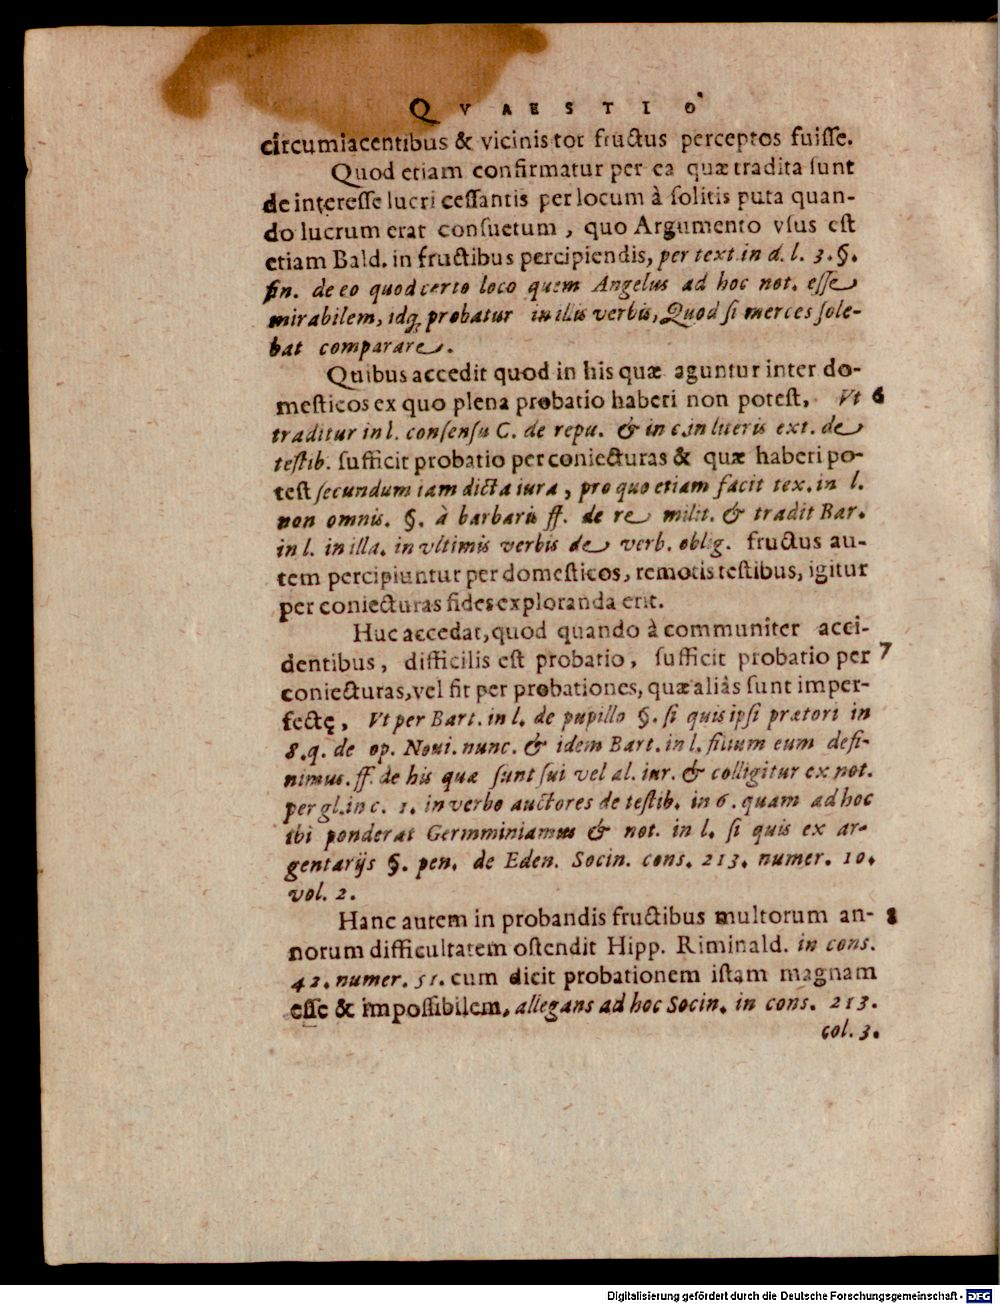 QVAESTIO
circumiacentibus & vicinis tot fructus perceptos fuisse.
Quod etiam confirmatur per ea quæ tradita sunt
de interesse lucri cessantis per locum à solitis puta quan-
do lucrum erat consuetum, quo Argumento vsus est
etiam Bald. in fructibus percipiendis, per text. in d. l. 3. §.
fin. de eo quod certo loco quem Angelus ad hoc not. esse
mirabilem, idq; probatur in ilis verbis, Quod si merces sole-
bat comparare.
Quibus accedit quod in his quæ aguntur inter do-
mesticos ex quo plena probatio haberi non potest, Vt 6
traditur in l. consensu C. de repu. & in c. in lueris ext. de
testib. sufficit probatio per coniecturas & quæ haberi po-
test secundum iam dicta iura, pro quo etiam facit tex. in l.
non omnis. §. à barbaris ff. de re milit. & tradit Bar.
in l. in illa. in vltimis verbis de verb. oblig. fructus au-
tem percipiuntur per domesticos, remotis testibus, igitur
per coniecturas fides exploranda erit.
Huc accedat, quod quando à communiter acci-
dentibus, difficilis est probatio, sufficit probatio per 7
coniecturas, vel fit per probationes, quæ aliàs sunt imper-
fectę, Vt per Bart. in l. de pupillo §. si quis ipsi prætori in
8. q. de op. Noui. nunc. & idem Bart. in l. filium eum defi-
nimus. ff. de his quæ sunt sui vel al. iur. & colligitur ex not.
per gl. in c. 1. in verbo auctores de testib. in 6. quam ad hoc
ibi ponderat Germminiamus & not. in l. si quis ex ar-
gentarijs §. pen. de Eden. Socin. cons. 213. numer. 10.
vol. 2.
Hanc autem in probandis fructibus multorum an- 8
norum difficultatem ostendit Hipp. Riminald. in cons.
42. numer. 51. cum dicit probationem istam magnam
esse & impossibilem, allegans ad hoc Socin. in cons. 213.
col. 3.
Digitalisierung gefördert durch die Deutsche Forschungsgemeinschaft - DFG